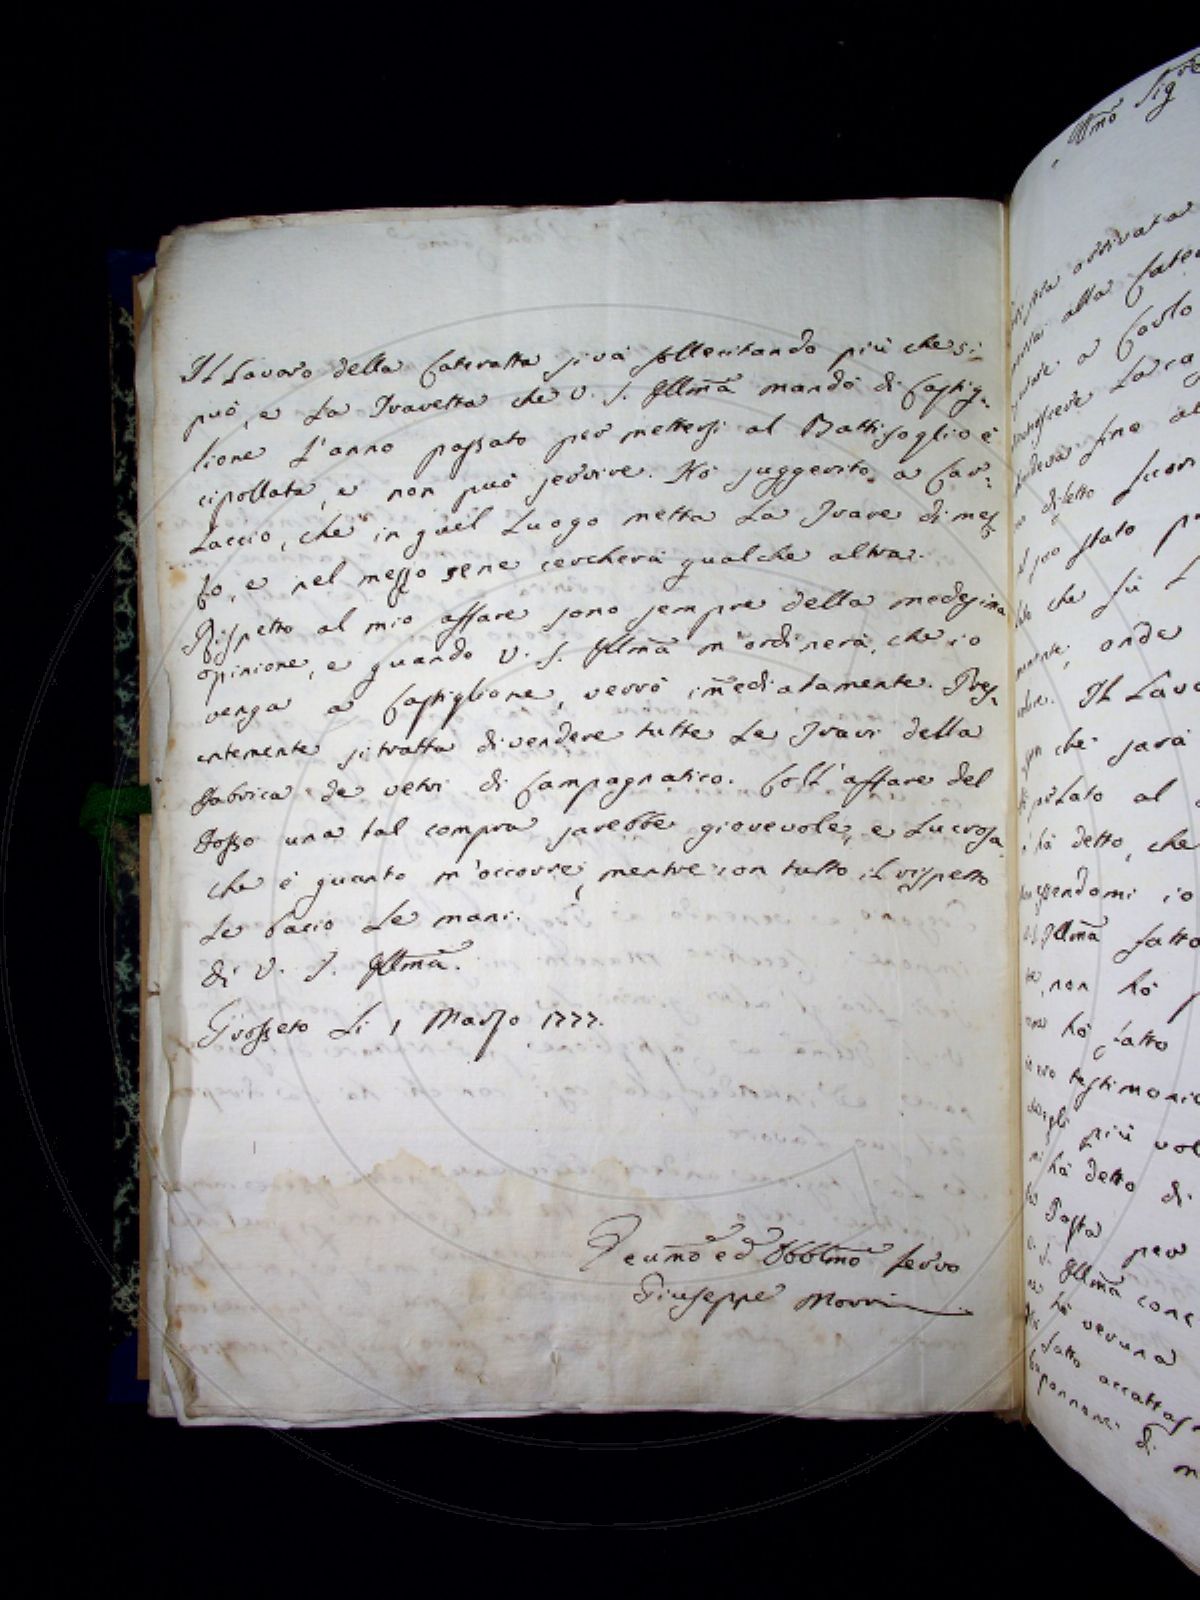 Il Lavoro della Cateratta si và sollecitando più che si
può, e La Travetta che V. S. Illma mandò di Castig-
lione L'anno passato per mettersi al Battisoglio è
cipollata, e non può servire. Hò suggerito a Car-
Laccio, che in quel Luogo metta La Trave di mez-
zo, e nel mezzo se ne cercherà qualche altra.
Rispetto al mio affare sono sempre della medesima
opinione, e quando V. S. Illma m'ordinerà, che io
venga a Castiglione, verrò imediatamente. Pres-
entemente si tratta di vendere tutte Le Travi della
Fabbrica de vetri di Campagnatico. Coll'affare del
Fosso una tal compra sarebbe giovevole, e Lucrosa
che è quanto m'occorre, mentre con tutto il rispetto
Le bacio Le mani.
di V. S. Illma.
Grosseto Li 1 Marzo 1777.
Devmo ed Obblmo servo
Giuseppe Morri
Illmo Sig
arrivata
alla Cater
a Carlo
La ca
fine al
di sotto
stato
che sù L
onde
Il Lavo
che sarà
al
hà detto, che
io
Illma fatto
non hò
hò fatto
testimonio
più vol
hà detto di
Posta per
Illma
hà veruna
fatto
di